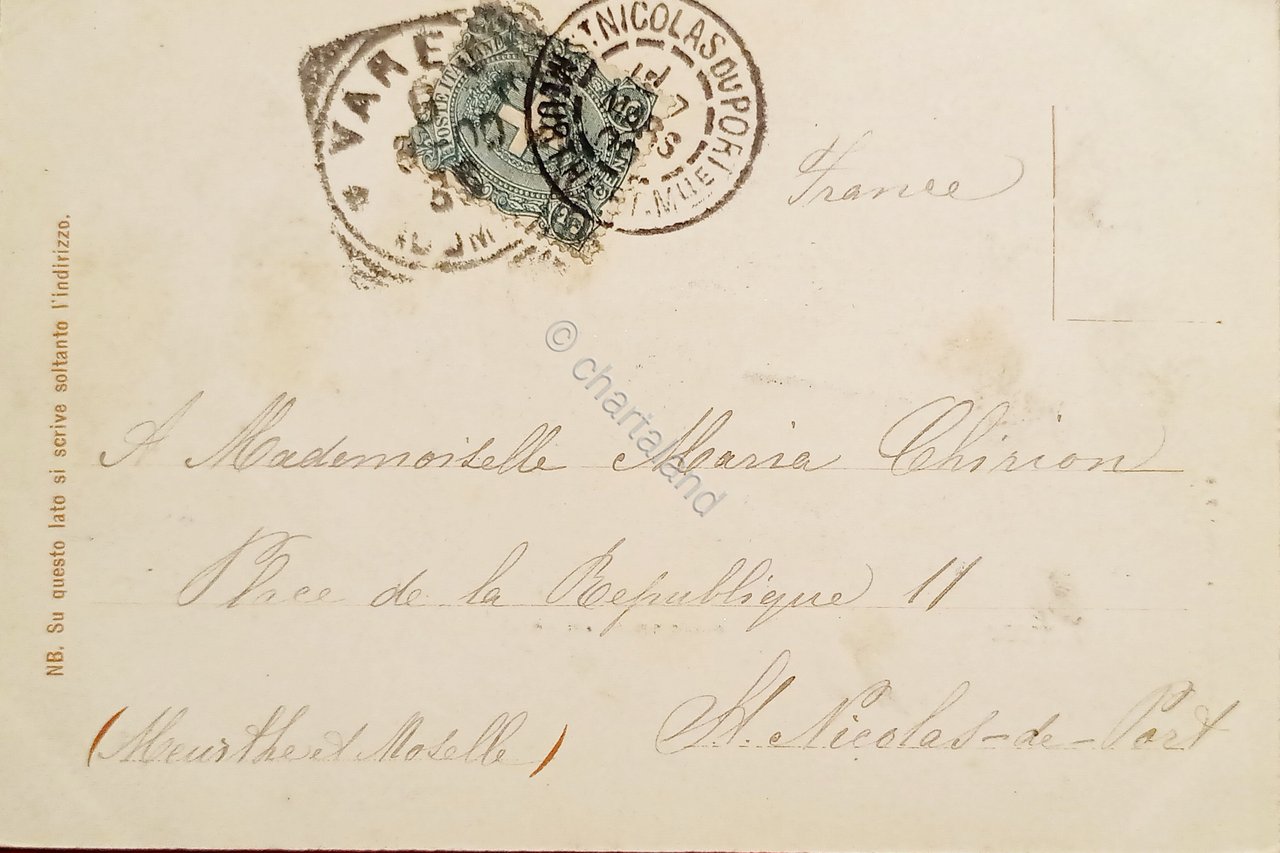 VARE
POSTE ITALIANE
ST NICOLAS DU PORT
MEURTHE
ET-MLLE
MARS
France
© chartaland
NB. Su questo lato si scrive soltanto l'indirizzo.
A Mademoiselle Maria Chirion
Place de la Republique 11
St. Nicolas-de-Port
(Meurthe et Moselle)